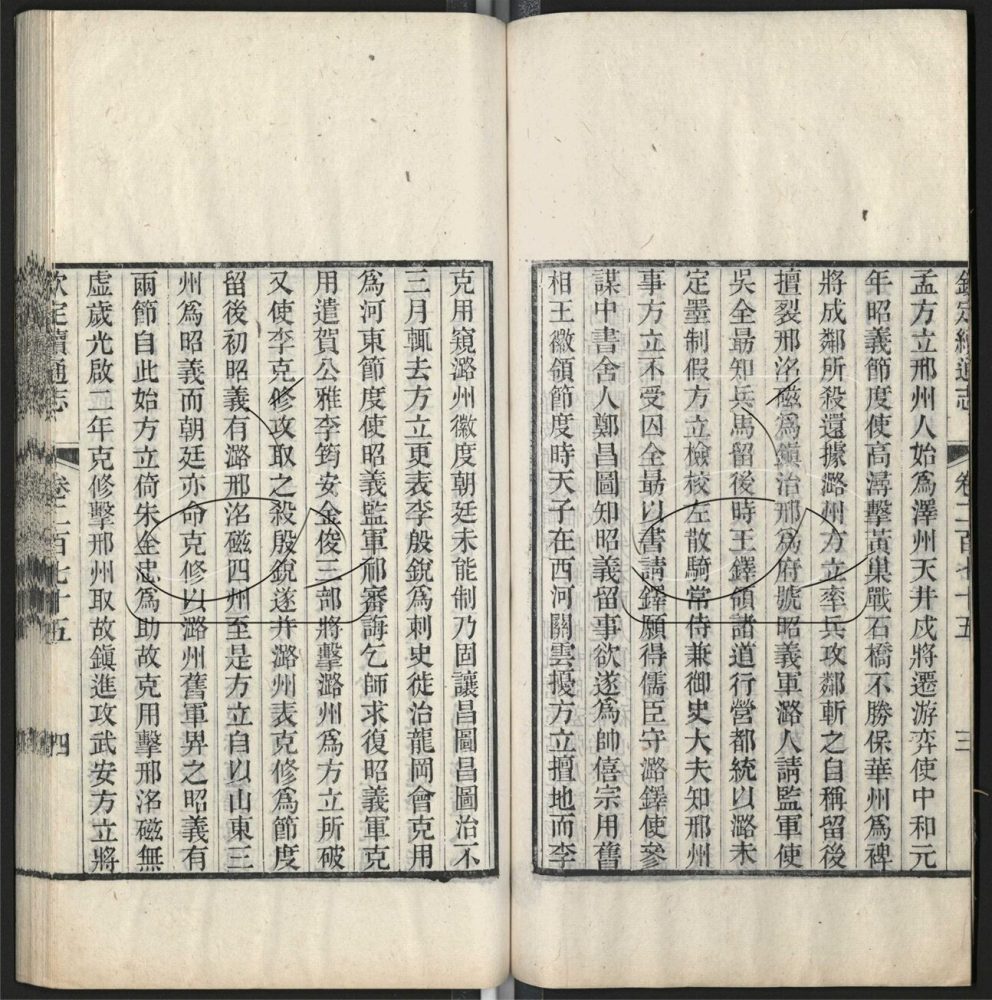 欽定續通志 卷二百七十五 三
孟方立邢州人始爲澤州天井戍將遷游弈使中和元
年昭義節度使高潯擊黃巢戰石橋不勝保華州爲裨
將成鄰所殺還據潞州方立率兵攻鄰斬之自稱留後
擅裂邢洺磁爲鎮治邢爲府號昭義軍潞人請監軍使
吳全最知兵馬留後時王鐸領諸道行營都統以潞未
定墨制假方立檢校左散騎常侍兼御史大夫知邢州
事方立不受囚全最以書請鐸願得儒臣守潞鐸使參
謀中書舍人鄭昌圖知昭義留事欲遂爲帥僖宗用舊
相王徽領節度時天子在西河關雲擾方立擅地而李
克用窺潞州徽度朝廷未能制乃固讓昌圖昌圖治不
三月輒去方立更表李殷銳爲刺史徙治龍岡會克用
爲河東節度使昭義監軍祁審誨乞師求復昭義軍克
用遣賀公雅李筠安金俊三部將擊潞州爲方立所破
又使李克修攻取之殺殷銳遂并潞州表克修爲節度
留後初昭義有潞邢洺磁四州至是方立自以山東三
州爲昭義而朝廷亦命克修以潞州舊軍畀之昭義有
兩節自此始方立倚朱全忠爲助故克用擊邢洺磁無
虛歲光啟二年克修擊邢州取故鎮進攻武安方立將
欽定續通志 卷二百七十五 四